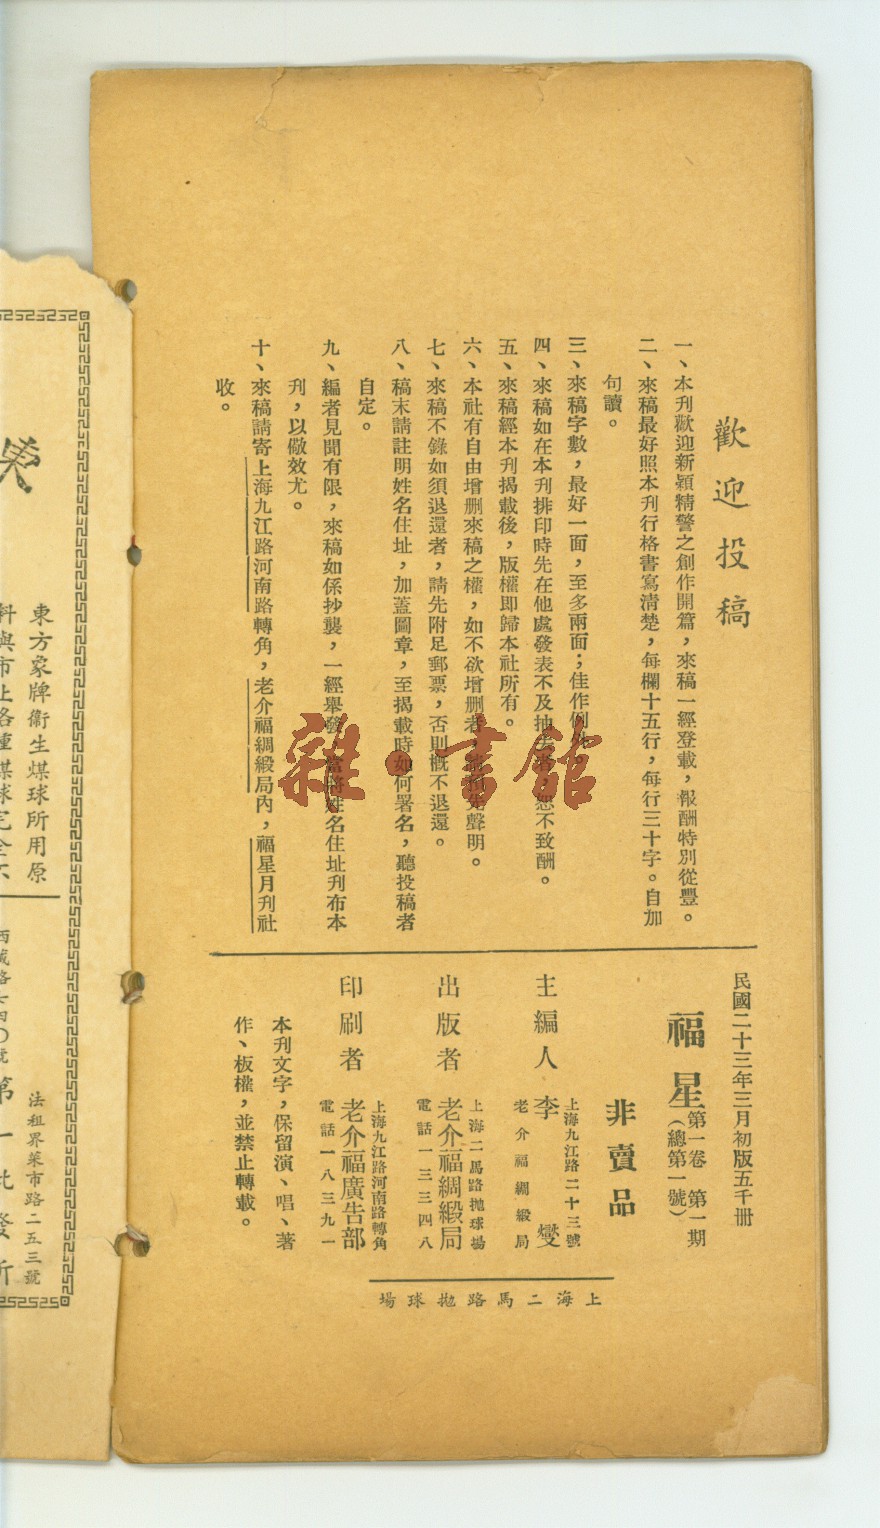 歡迎投稿
一、本刊歡迎新穎精警之創作開篇，來稿一經登載，報酬特別從豐。
二、來稿最好照本刊行格書寫清楚，每欄十五行，每行三十字。自加
句讀。
三、來稿字數，最好一面，至多兩面；佳作例外。
四、來稿如在本刊排印時先在他處發表不及抽去者，恕不致酬。
五、來稿經本刊揭載後，版權即歸本社所有。
六、本社有自由增刪來稿之權，如不欲增刪者，請預先聲明。
七、來稿不錄如須退還者，請先附足郵票，否則槪不退還。
八、稿末請註明姓名住址，加蓋圖章，至揭載時如何署名，聽投稿者
自定。
九、編者見聞有限，來稿如係抄襲，一經舉發，當將姓名住址刊布本
刊，以儆效尤。
十、來稿請寄上海九江路河南路轉角，老介福綢緞局內，福星月刊社
收。
民國二十三年三月初版五千册
福星
第一卷 第一期
（總第一號）
非賣品
主編人 李燮
上海九江路二十三號
老介福綢緞局
出版者 老介福綢緞局
上海二馬路拋球場
電話一三三四八
印刷者 老介福廣告部
上海九江路河南路轉角
電話一八三九一
本刊文字，保留演、唱、著
作、板權，並禁止轉載。
上海二馬路拋球場
東方象牌衞生煤球所用原
法租界菜市路二五三號
第一批發所
雜·書館